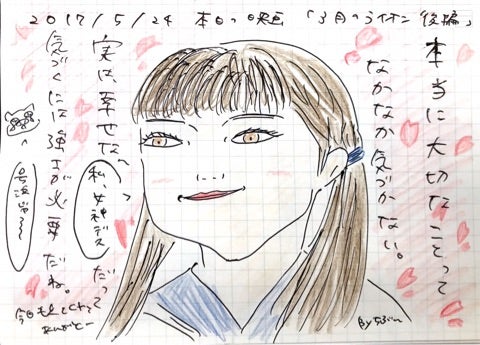 2017/5/24 本日の映画 「3月のライオン 後編」
本当に大切なことって
なかなか気づかない。
実は、幸せな
だって
気づくには強さが必要だね。
私、女神デス
号泣
今日も
ありがとー
By